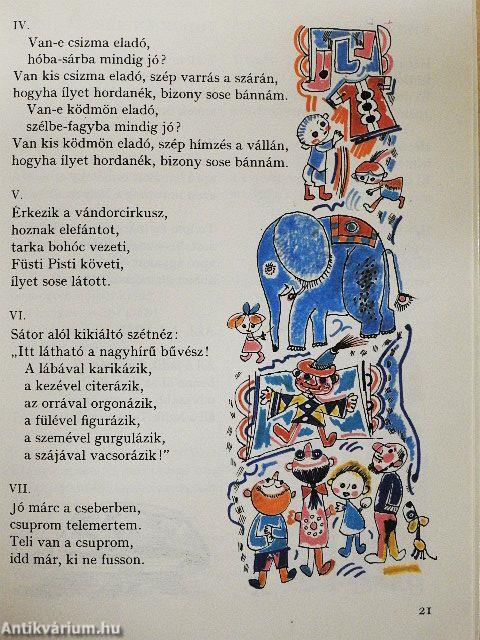 IV.
Van-e csizma eladó,
hóba-sárba mindig jó?
Van kis csizma eladó, szép varrás a szárán,
hogyha ílyet hordanék, bizony sose bánnám.
Van-e ködmön eladó,
szélbe-fagyba mindig jó?
Van kis ködmön eladó, szép hímzés a vállán,
hogyha ílyet hordanék, bizony sose bánnám.
V.
Érkezik a vándorcirkusz,
hoznak elefántot,
tarka bohóc vezeti,
Füsti Pisti követi,
ílyet sose látott.
VI.
Sátor alól kikiáltó szétnéz:
„Itt látható a nagyhírű bűvész!
A lábával karikázik,
a kezével citerázik,
az orrával orgonázik,
a fülével figurázik,
a szemével gurgulázik,
a szájával vacsorázik!”
VII.
Jó márc a cseberben,
csuprom telemertem.
Teli van a csuprom,
idd már, ki ne fusson.
21
Antikvárium.hu